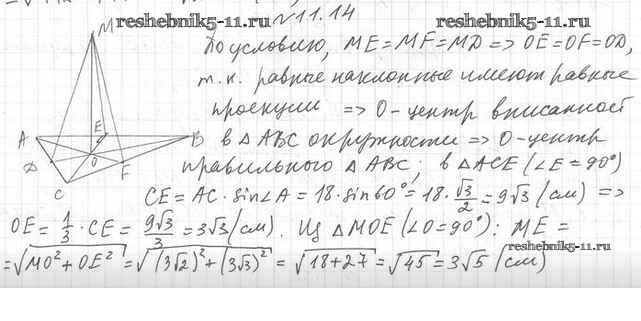 reshebnik5-11.ru
N 11.14
По условию, ME = MF = MD => OE = OF = OD,
т.к. равные наклонные имеют равные
проекции => O - центр вписанной
в △ ABC окружности => O - центр
правильного △ ABC; в △ ACE (∠E = 90°)
CE = AC · sin∠A = 18 · sin 60° = 18 · √3/2 = 9√3 (см) =>
OE = 1/3 · CE = 9√3/3 = 3√3 (см). Из △ MOE (∠O = 90°): ME =
= √(MO² + OE²) = √((3√2)² + (3√3)²) = √(18 + 27) = √45 = 3√5 (см)
reshebnik5-11.ru
M
A
E
B
D
O
F
C